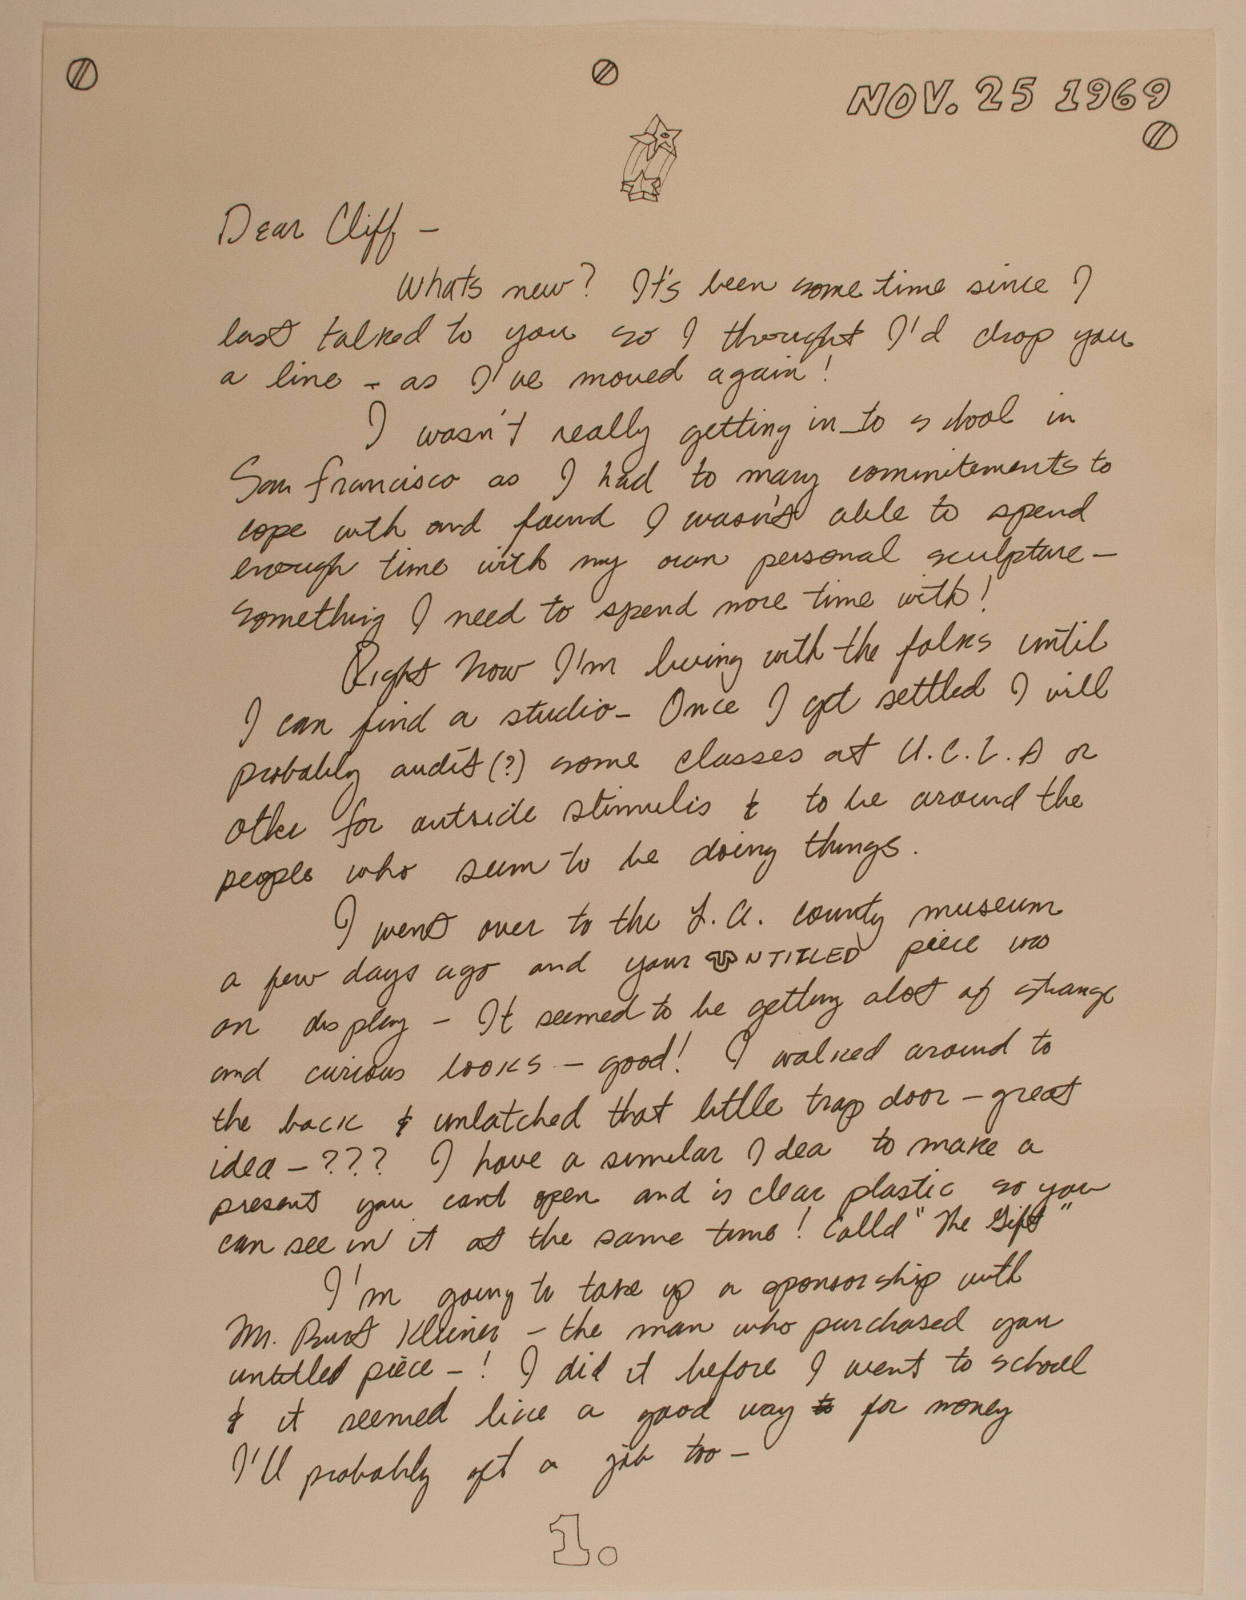 NOV. 25 1969
Dear Cliff –
Whats new? It's been some time since I
last talked to you so I thought I'd drop you
a line – as I've moved again!
I wasn't really getting in_to school in
San Francisco as I had to many commitements to
cope with and found I wasn't able to spend
enough time with my own personal sculpture –
something I need to spend more time with!
Right now I'm living with the folks until
I can find a studio – Once I get settled I will
probably audit (?) some classes at U.C.L.A or
other for outside stimulis & to be around the
people who seem to be doing things.
I went over to the L.A. county museum
a few days ago and your UNTITLED piece was
on display – It seemed to be getting alot of strange
and curious looks – good! I walked around to
the back & unlatched that little trap door – great
idea – ??? I have a similar Idea to make a
present you cant open and is clear plastic so you
can see in it at the same time! Calld "The Gift"
I'm going to take up a sponsorship with
Mr. Burt Kleiner – the man who purchased your
untitled piece – ! I did it before I went to school
& it seemed like a good way to for money
I'll probably get a job too –
1.